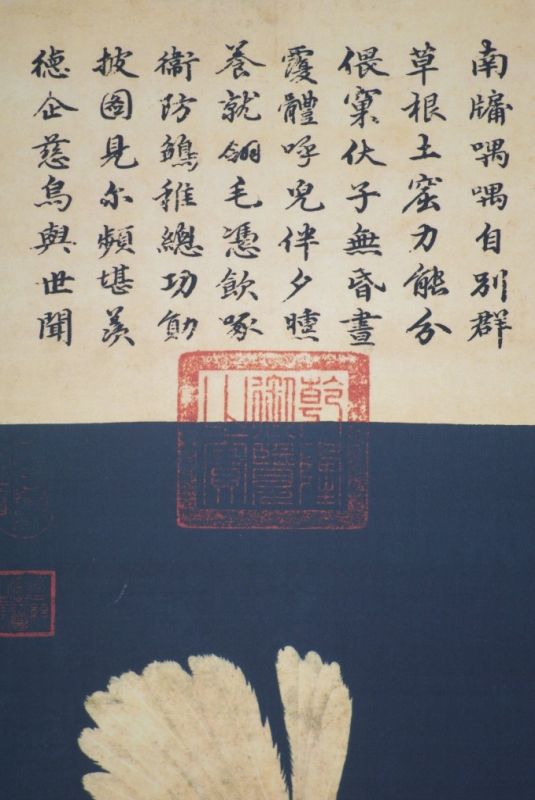 南牖喁喁自別群
草根土窟力能分
偎窠伏子無昏晝
覆體呼兒伴夕曛
養就翎毛憑飲啄
衛防鶵稚總功勛
披圖見尔頻堪羨
德企慈烏與世聞
乾隆御覽之寶